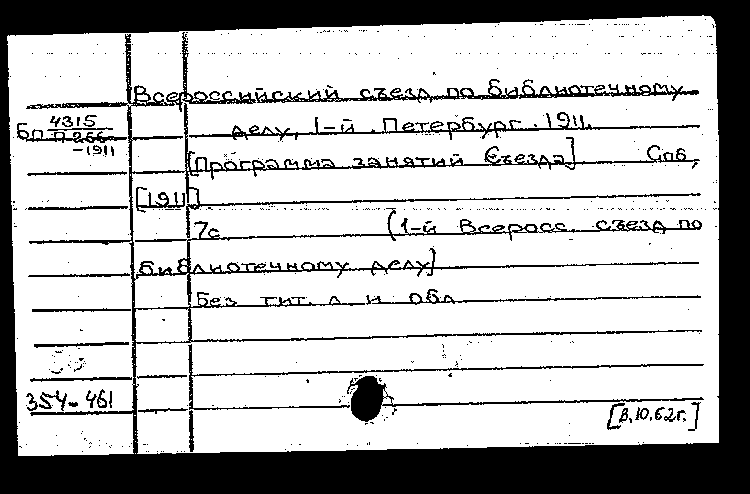 Всероссийский съезд по библиотечному
БП 4315
П-266-
-1911
делу, 1-й. Петербург. 1911.
[Программа занятий Съезда] Спб,
[1911]
7с (1-й Всеросс. съезд по
библиотечному делу)
Без тит. л. и обл.
354-461
[8.10.62г.]